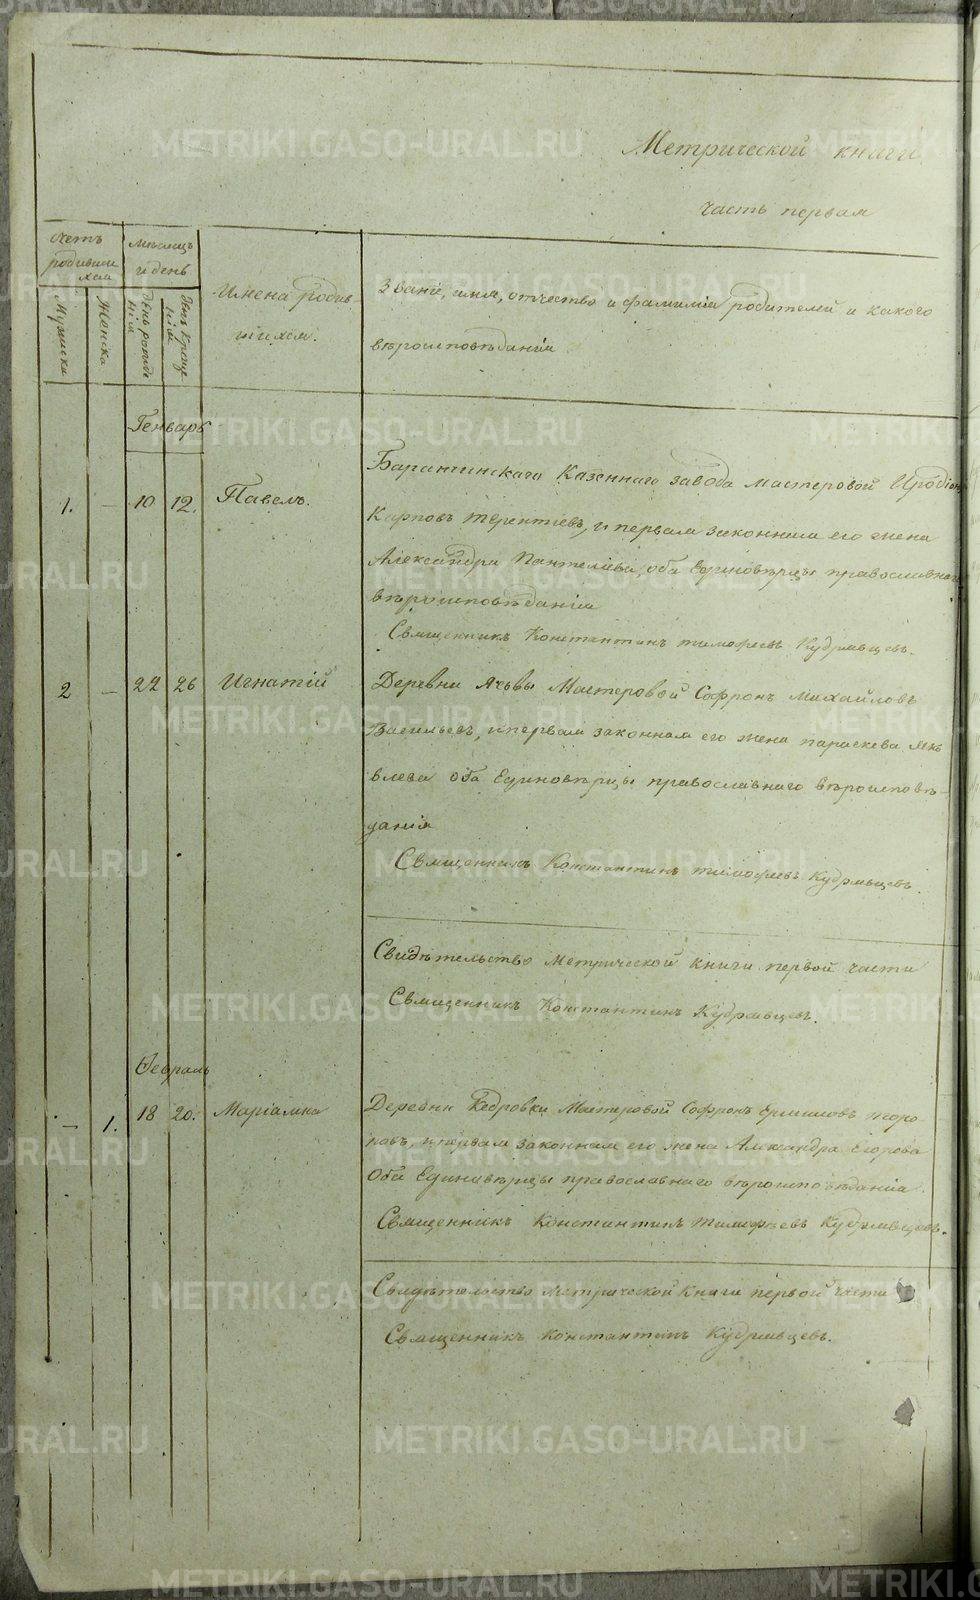 Метрической книги
часть первая
Счетъ
родивши
хся
Мѣсяцъ
и день
Имена родив
шихся.
Званіе, имя, отчество и фамиліи родителей и какого
вѣроисповѣданія
Мужеска
Женска
День рожде
нія
День креще
нія
Генварь
1. — 10 12. Павелъ.
Баранчинскаго Казеннаго завода мастеровой Иродіонъ
Карповъ терентіевъ, и первая законная его жена
Александра Пантелѣева, оба Единовѣрцы православнаго
вѣроисповѣданія
Священникъ Константинъ тимофеевъ Кудрявцевъ.
2 — 22 26 Игнатій
Деревни Мастеровой Софронъ михайловъ
Васильевъ, и первая законная его жена параскева Як
влева оба Единовѣрцы православнаго вѣроисповѣ-
данія
Священникъ Константинъ тимофеевъ Кудрявцевъ.
Свидѣтельство метрической книги первой части
Священникъ Константинъ Кудрявцевъ.
Февраль
— 1. 18 20. Маріамна
Деревни Кедровки Мастеровой Софронъ Ермиловъ торо
повъ, и первая законная его жена Александра Егорова
Оба Единовѣрцы православнаго вѣроисповѣданія.
Священникъ Константинъ тимофѣевъ Кудрявцевъ.
Свидѣтельство метрической книги первой части
Священникъ Константинъ Кудрявцевъ.
METRIKI.GASO-URAL.RU